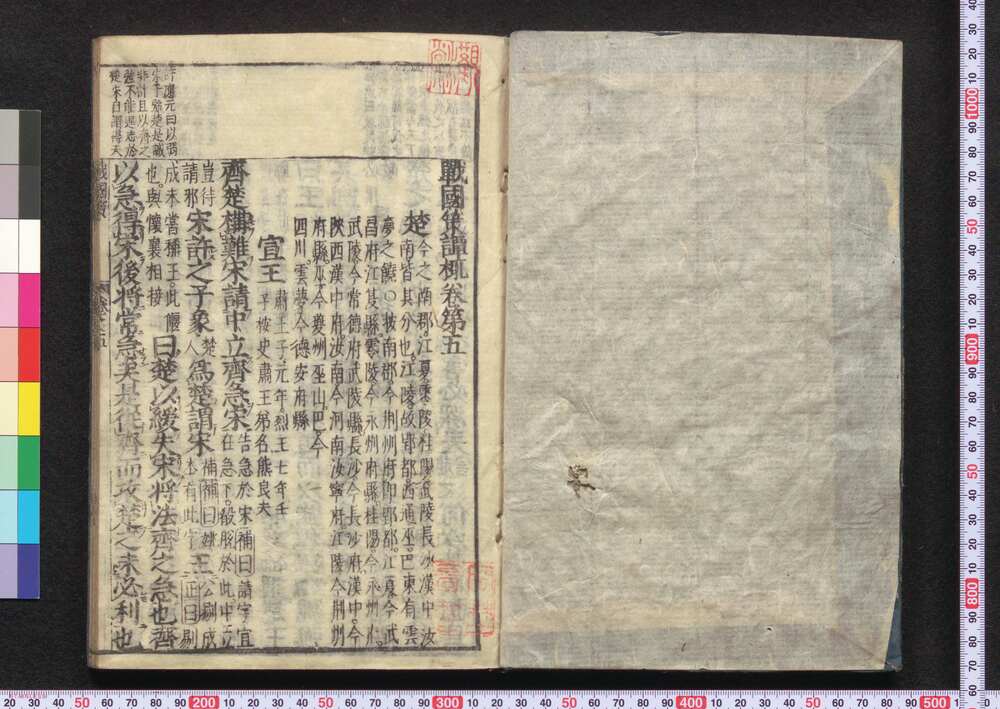 戰國策譚棷卷第五
楚
今之南郡江夏零陵桂陽武陵長沙漢中汝
南皆其分也江陵故郢都西通巫巴東有雲
夢之饒○按南郡今荆州府即郢都江夏今武
昌府江夏縣零陵今永州府縣桂陽今永州
武陵今常德府武陵縣長沙今長沙府漢中今
陝西漢中府汝南今河南汝寧府江陵今荆州
府縣巫今夔州巫山巴今
四川雲夢今德安府縣
宣王
肅王子元年烈王七年壬
子按史肅王弟名熊良夫
齊楚構難宋請中立齊急宋
告急於宋補曰請字宜
在急下殽脫於此中立
豈待
請邪
宋許之子象
楚
人
爲楚謂宋
本有此字
王
正曰剔
公剔成
成未嘗稱王此偃
也與懷襄相接
曰楚以緩失宋將法齊之急也齊
以急得宋後將常急矣是從齊而攻楚之未必利也
許應元曰以弱
宋子雖楚是誠
非計且以齊之
強不能逞志於
楚宋自謂得天